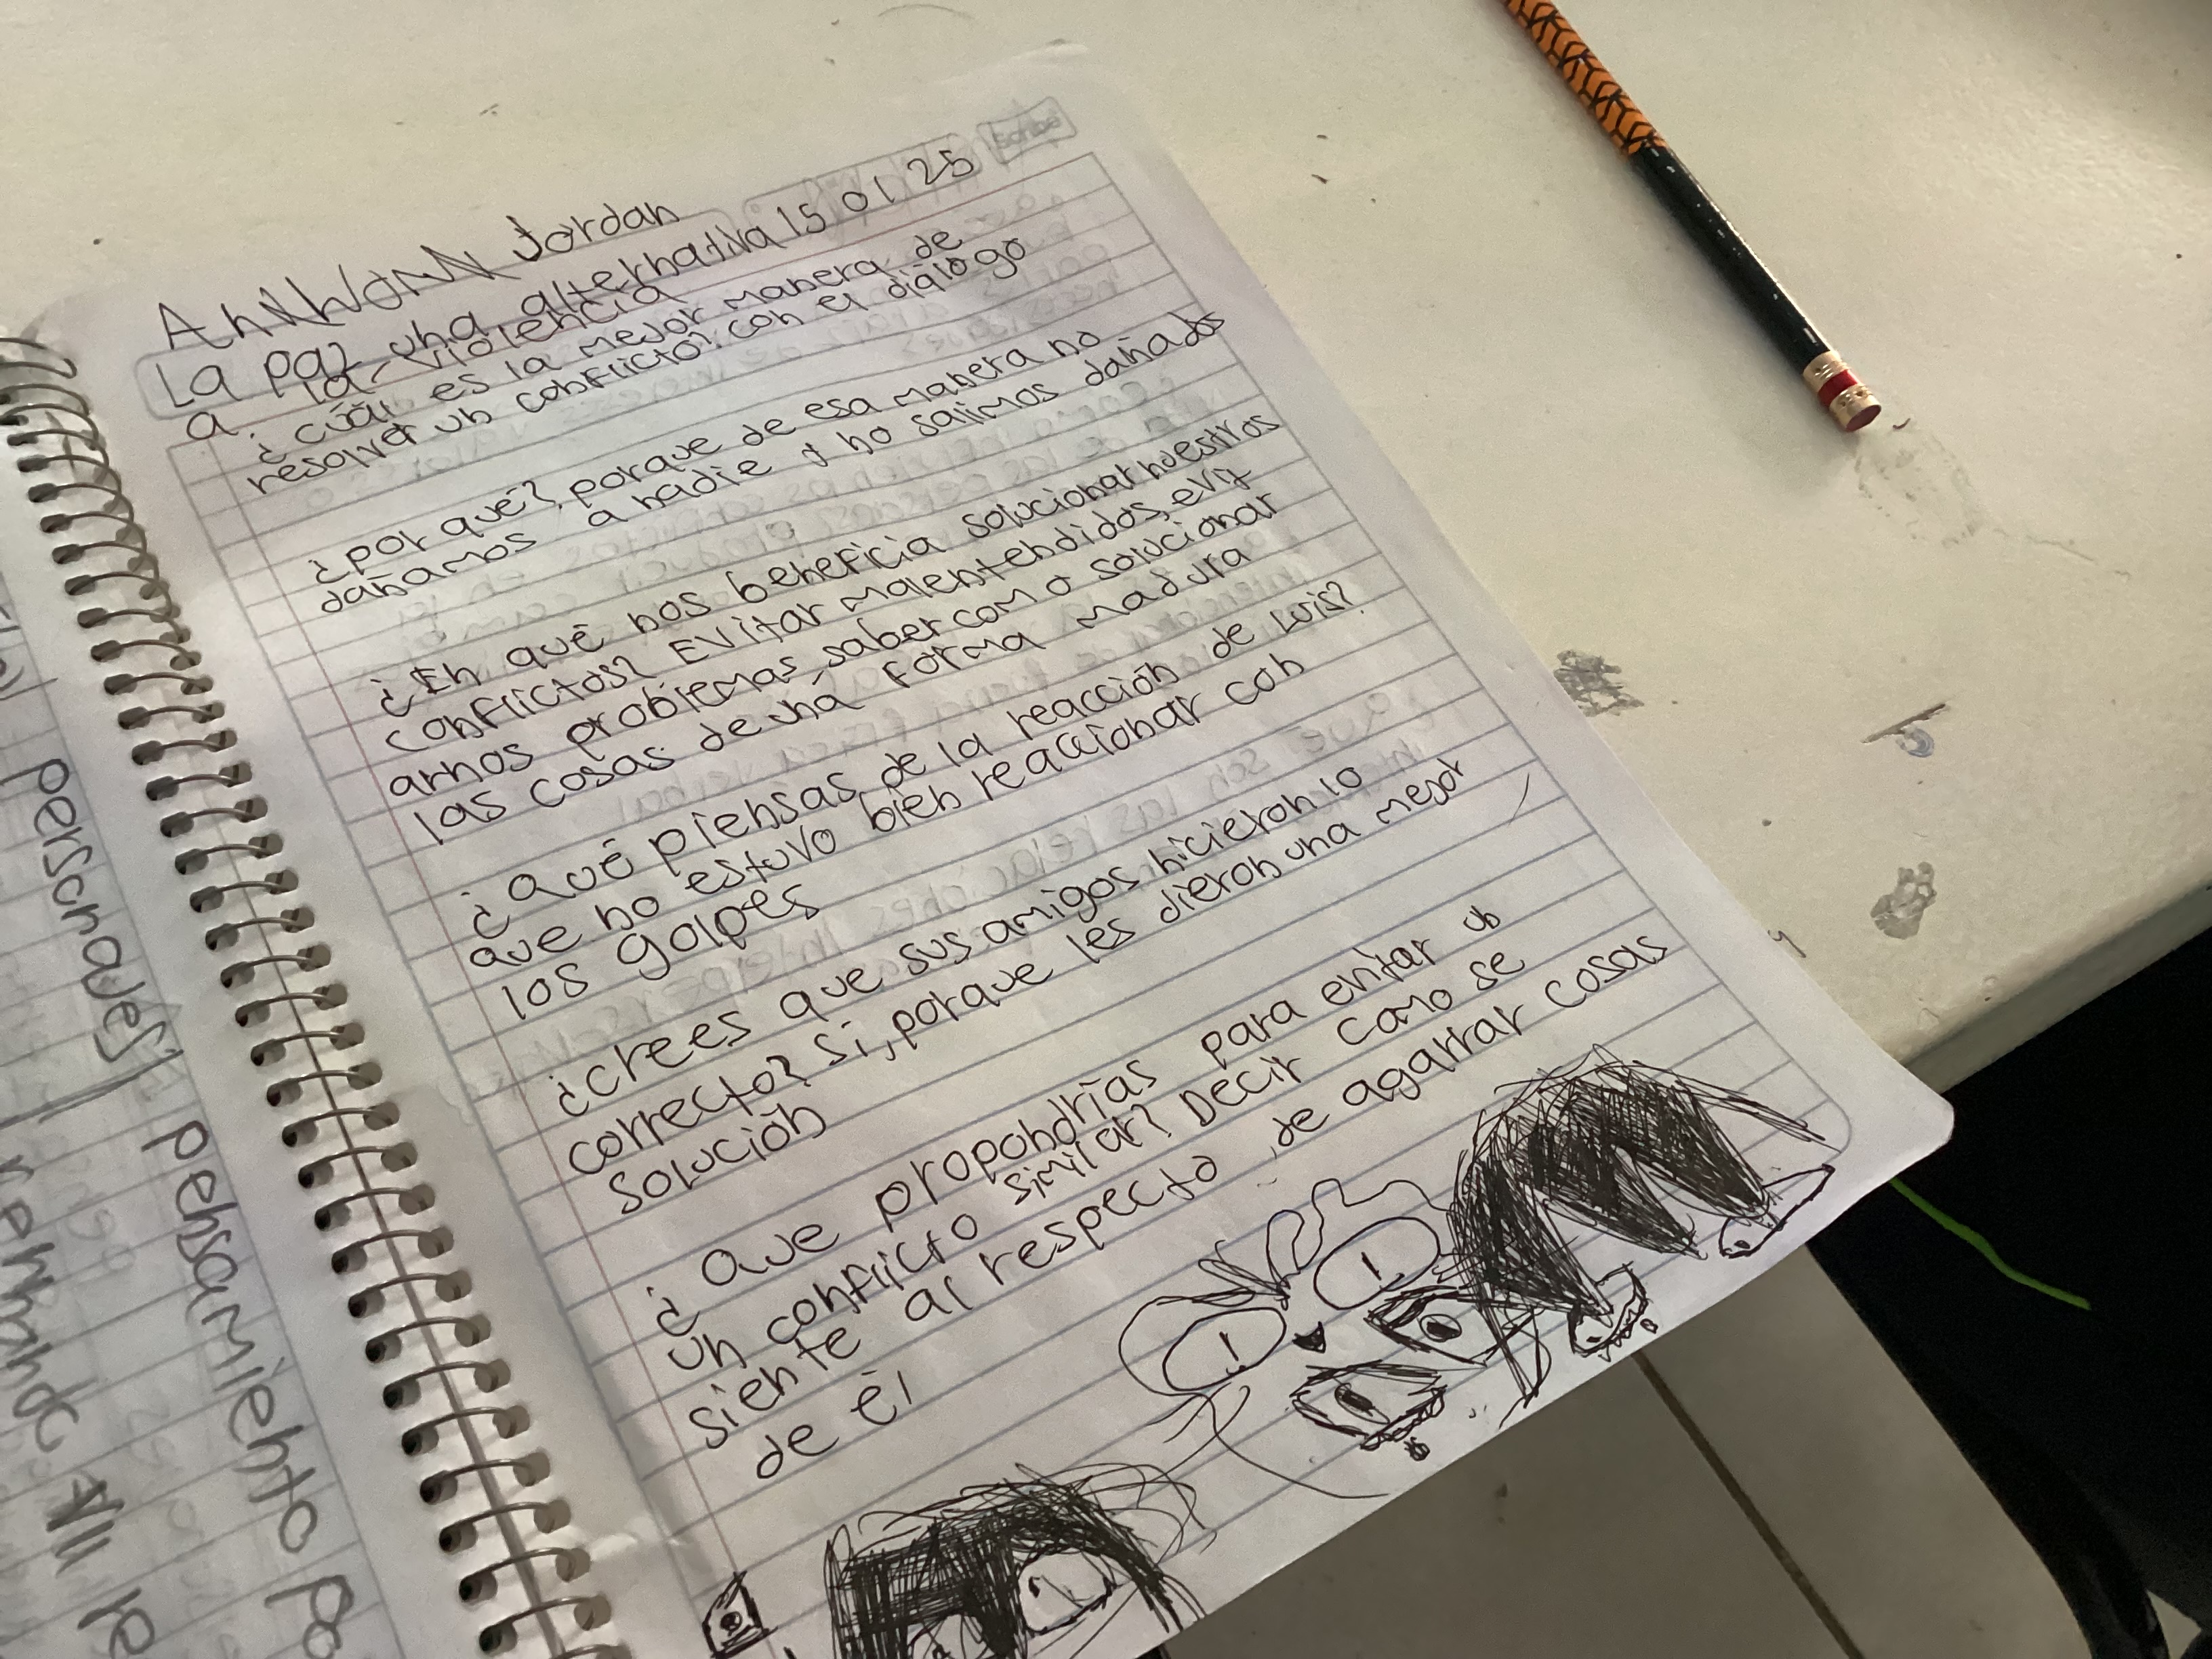 Jordan
La paz una alternativa 15 01 25
a la violencia
¿cúal es la mejor manera de
resolver un conflicto?: con el diálogo
¿por qué?, porque de esa manera no
dañamos a nadie y no salimos dañados
¿En qué nos beneficia solucionar nuestros
conflictos? Evitar malentendidos, evit
arnos problemas, saber como solucionar
las cosas de una forma madura
¿Qué piensas de la reacción de Luis?
que no estuvo bien reaccionar con
los golpes
¿crees que sus amigos hicieron lo
correcto? Si, porque les dieron una mejor
solución
¿Que propondrías para evitar un
un conflicto similar? Decir como se
siente al respecto, de agarrar cosas
de él
Scribe
personajes
pensamiento